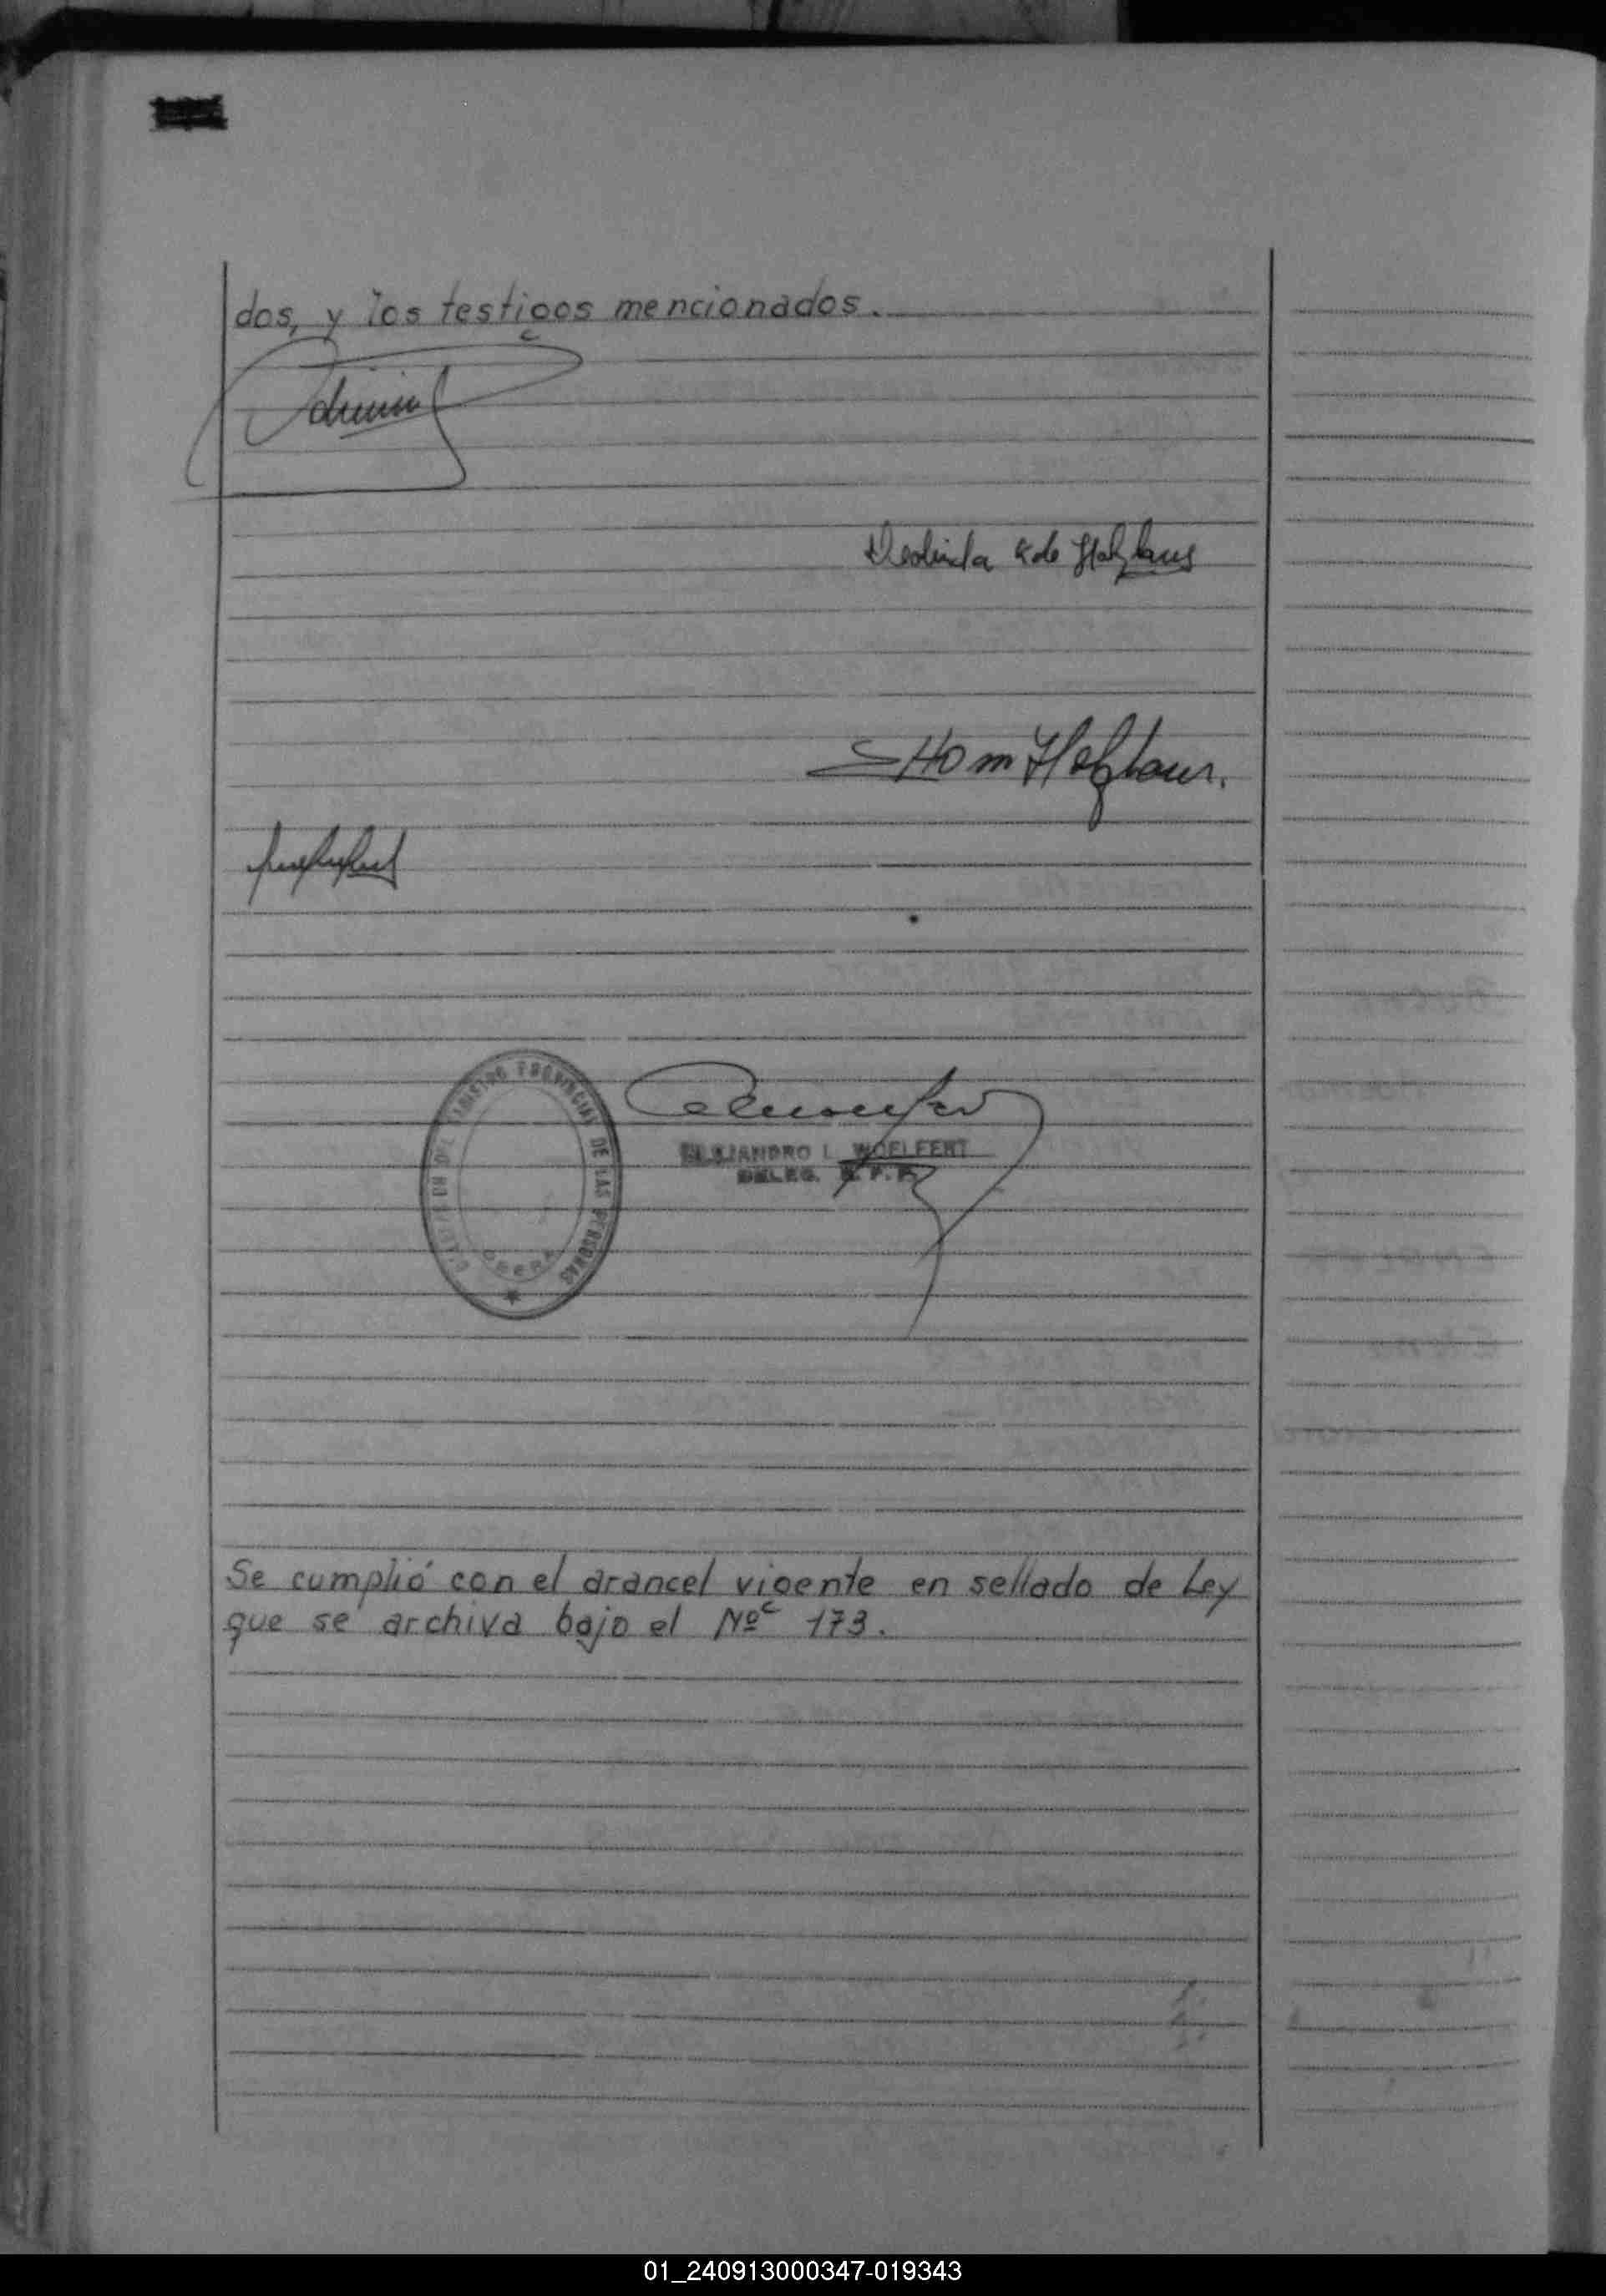 dos, y los testigos mencionados.
de Holzbaur
Hom Holzbaur.
DEL REGISTRO PROVINCIAL DE LAS PERSONAS
OBERA
ALEJANDRO L. WOELFERT
DELEG. R. P. P.
Se cumplió con el arancel vigente en sellado de Ley
que se archiva bajo el Nº 173.
01_240913000347-019343